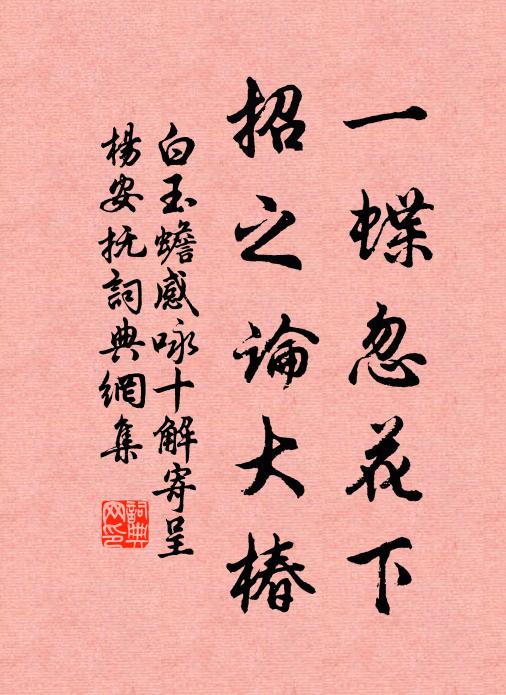 一蝶忽花下
招之論大椿
白玉蟾感咏十解寄呈
楊安抚詞典網集
詞典网印